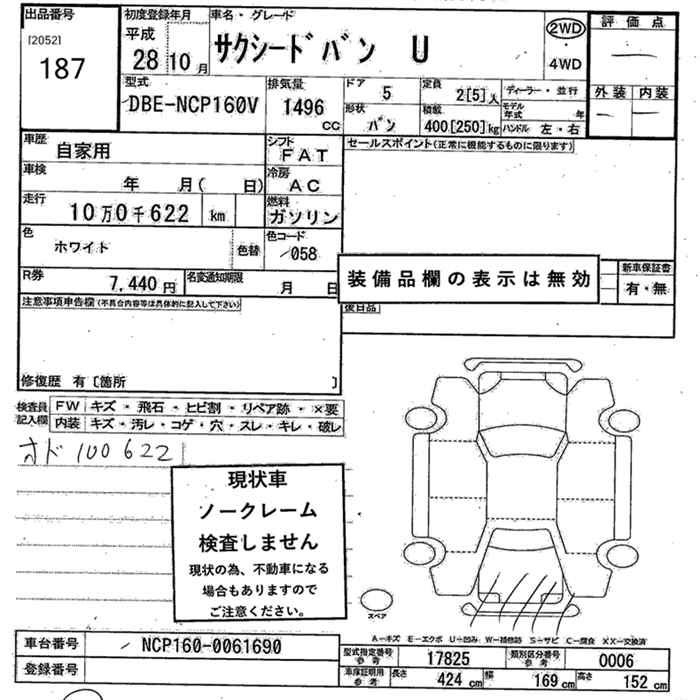 出品番号 初度登録年月 車名・グレード 評価点
[2052] 平成
187 28 10月 サクシードバン U 2WD
4WD
型式 排気量 ドア 5 定員 2[5]人 ディーラー・並行 外装 内装
DBE-NCP160V 1496 CC 形状 バン 積載 400[250]kg モデル年式 年
ハンドル 左・右
車歴 自家用 シフト FAT セールスポイント(正常に機能するものに限ります)
車検 年 月( 日) 冷房 AC
走行 10万0千622 km 燃料 ガソリン
色 ホワイト 色替 色コード 058
R券 7,440円 名変通知期限 月 日 装備品欄の表示は無効 新車保証書
有・無
注意事項申告欄(不具合内容等は具体的に記入して下さい) 後日品
修復歴 有〔箇所 〕
検査員記入欄 FW キズ・飛石・ヒビ割・リペア跡・×要
内装 キズ・汚レ・コゲ・穴・スレ・キレ・破レ
オド 100622
現状車
ノークレーム
検査しません
現状の為、不動車になる
場合もありますので
ご注意ください。
スペア
A-キズ E-エクボ U-凹み W-補修跡 S-サビ C-腐食 XX-交換済
車台番号 NCP160-0061690 型式指定番号 参考 17825 類別区分番号 参考 0006
登録番号 車庫証明用 参考 長さ 424 cm 幅 169 cm 高さ 152 cm